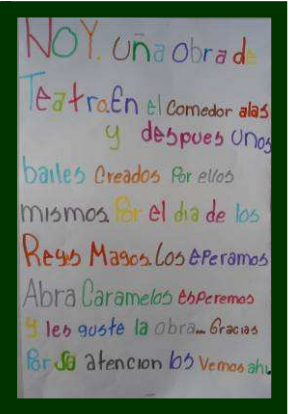 HOY. uña obra de
Teatro.En el comedor alas
y despues unos
bailes Creados Por ellos
mismos. Por el dia de los
Reyes Magos. Los ePeramos
Abra Caramelos esPeremos
y les guste la obra... Gracias
Por Su atencion los Vemos ahi